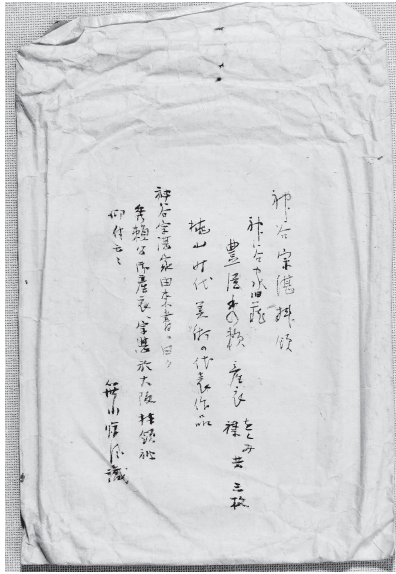 神谷宗湛拝領
神谷家旧蔵
豊臣秀頼産衣 をくみ
襟共三枚
桃山時代美術の代表作品
神谷宗湛家由来書ニ曰ク
秀頼公御産衣、宗湛於大阪拝領被
仰付云々
識